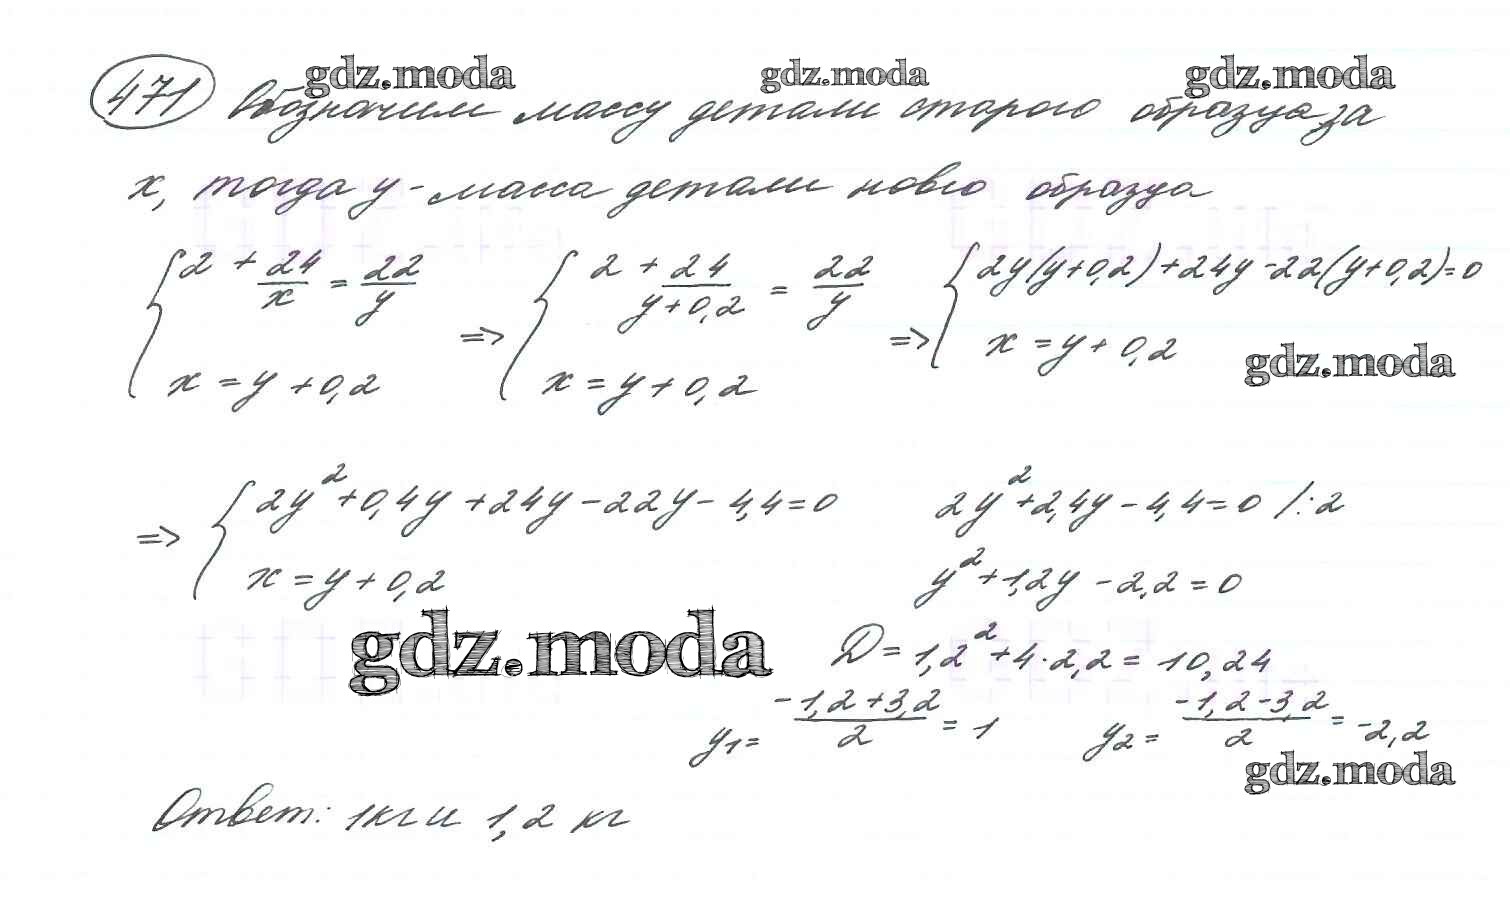 gdz.moda gdz.moda gdz.moda
471 Обозначим массу детали старого образца за
x, тогда y - масса детали нового образца
{ 2 + 24/x = 22/y => { 2 + 24/(y+0,2) = 22/y => { 2y(y+0,2)+24y-22(y+0,2)=0
x = y + 0,2 x = y + 0,2 x = y + 0,2
gdz.moda
=> { 2y²+0,4y+24y-22y-4,4=0 2y²+2,4y-4,4=0 /:2
x = y + 0,2 y²+1,2y-2,2=0
gdz.moda D=1,2²+4·2,2=10,24
y1= (-1,2+3,2)/2 = 1 y2= (-1,2-3,2)/2 = -2,2
gdz.moda
Ответ: 1кг и 1,2 кг